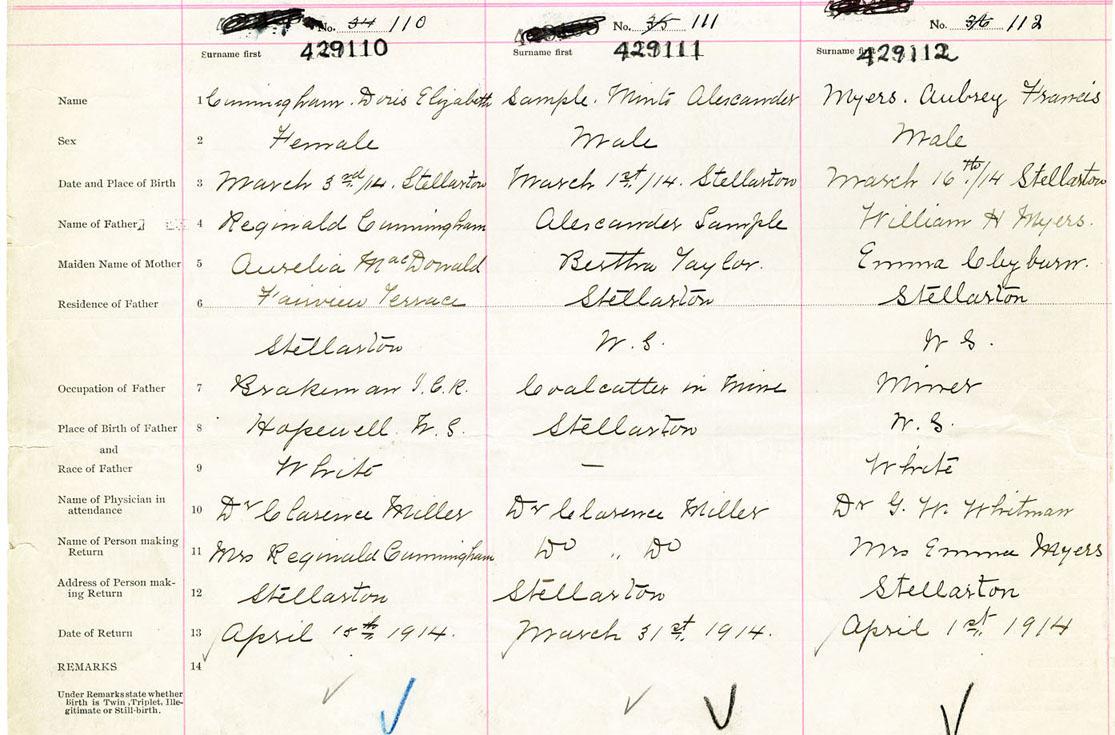 No. 34 110 No. 35 111 No. 36 112
Surname first 429110 Surname first 429111 Surname first 429112
Name 1 Cunningham. Doris Elizabeth Sample. Minto Alexcander Myers. Aubrey Francis
Sex 2 Female Male Male
Date and Place of Birth 3 March 3rd/14. Stellarton March 1st/14. Stellarton March 16th/14 Stellarton
Name of Father 4 Reginald Cunningham Alexcander Sample William H Myers.
Maiden Name of Mother 5 Aurelia MacDonald Bertha Taylor. Emma Cleyburn.
Residence of Father 6 Fairview Terrace Stellarton Stellarton
Stellarton N.S. N S.
Occupation of Father 7 Brakeman I.C.R. Coalcutter in Mine Miner
Place of Birth of Father 8 Hopewell. N.S. Stellarton N.S.
and
Race of Father 9 White — White
Name of Physician in
attendance 10 Dr Clarence Miller Dr Clarence Miller Dr G. W. Whitman
Name of Person making
Return 11 Mrs Reginald Cunningham Do „ Do Mrs Emma Myers
Address of Person mak-
ing Return 12 Stellarton Stellarton Stellarton
Date of Return 13 April 15th 1914. March 31st. 1914. April 1st. 1914
REMARKS 14
Under Remarks state whether
Birth is Twin, Triplet, Ille-
gitimate or Still-birth.